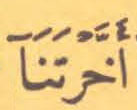 أَخَّرْتَنَا